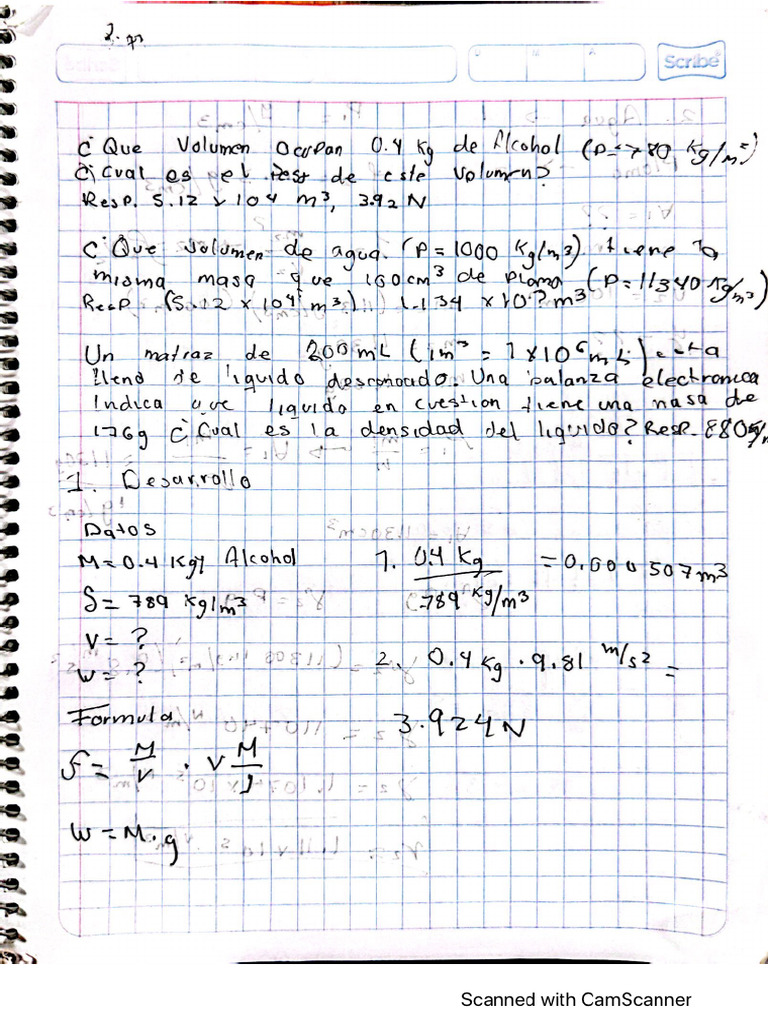 Scribe
¿Que Volumen Ocupan 0.4 Kg de Alcohol (P=780 Kg/m³)
¿Cual es el peso de este Volumen?
Resp. 5.12 x 104 m³, 3.92 N
¿Que volumen de agua. (P=1000 Kg/m3) tiene la
misma masa que 100 cm³ de plomo (P=11340 Kg/m3)
Resp (5.12 x 104 m³) 1.134 x 10 m³
Un matraz de 200 mL (1m³ = 1x10⁶ mL) esta
lleno de liquido desconocido. Una balanza electronica
Indica que liquido en cuestion tiene una masa de
176g ¿Cual es la densidad del liquido? Resp. 880
1. Desarrollo
Datos
M=0.4 Kg Alcohol 1. 0.4 Kg = 0.000507 m3
δ= 789 Kg/m³ 789 Kg/m3
V= ?
W= ? 2. 0.4 Kg · 9.81 m/s2 =
Formula 3.924 N
δ= M/V · V M/δ
W = M·g
Scanned with CamScanner